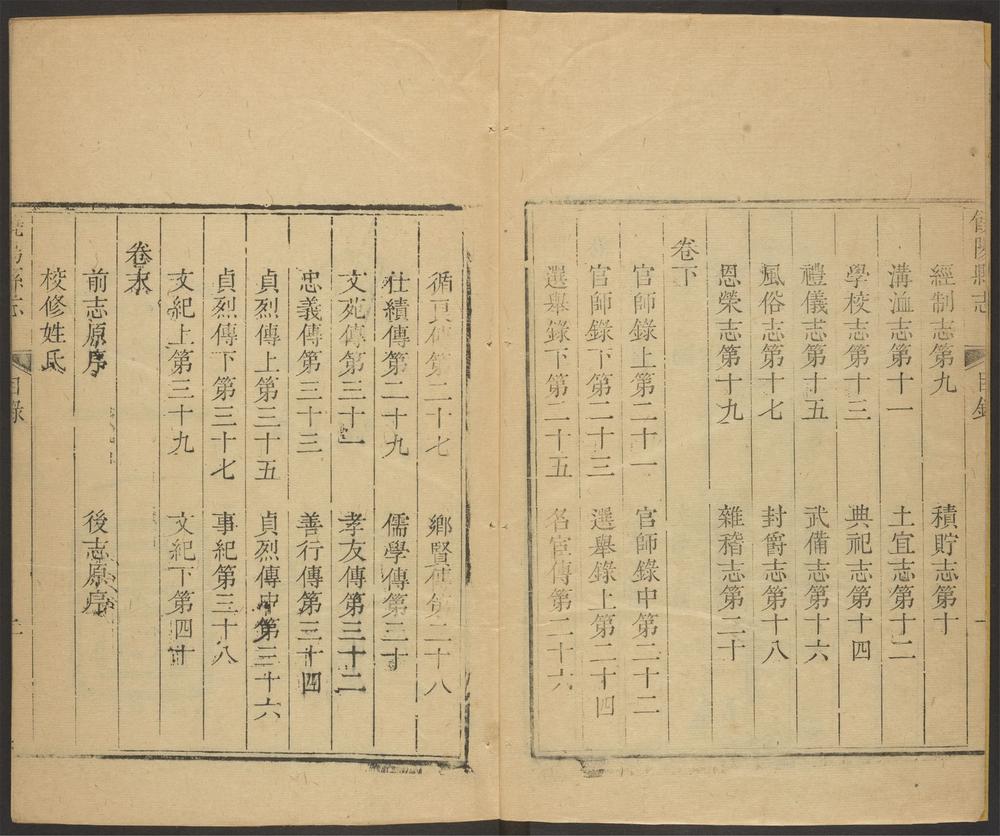 饒陽縣志
目錄
一
經制志第九　積貯志第十
溝洫志第十一　土宜志第十二
學校志第十三　典祀志第十四
禮儀志第十五　武備志第十六
風俗志第十七　封爵志第十八
恩榮志第十九　雜稽志第二十
卷下
官師錄上第二十一　官師錄中第二十二
官師錄下第二十三　選舉錄上第二十四
選舉錄下第二十五　名宦傳第二十六
循良傳第二十七　鄉賢傳第二十八
仕績傳第二十九　儒學傳第三十
文苑傳第三十一　孝友傳第三十二
忠義傳第三十三　善行傳第三十四
貞烈傳上第三十五　貞烈傳中第三十六
貞烈傳下第三十七　事紀第三十八
文紀上第三十九　文紀下第四十
卷末
前志原序　後志原序
校修姓氏
饒陽縣志
目錄
二